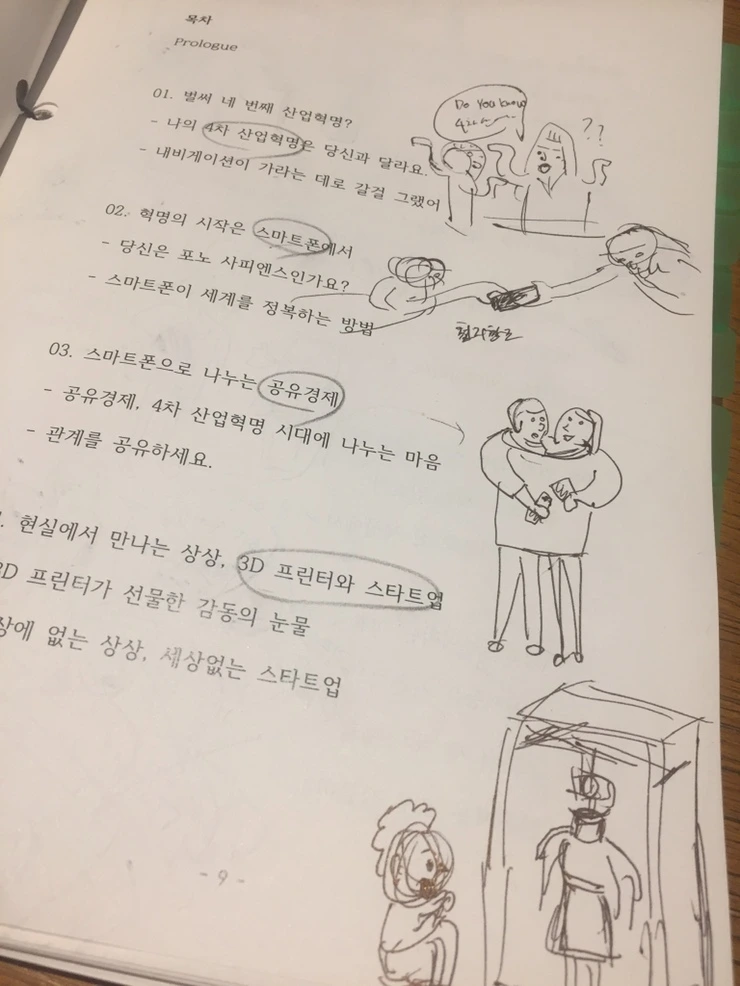 목차
Prologue
01. 벌써 네 번째 산업혁명?
- 나의 4차 산업혁명은 당신과 달라요.
- 내비게이션이 가라는 데로 갈걸 그랬어
Do you know
4차
??
02. 혁명의 시작은 스마트폰에서
- 당신은 포노 사피엔스인가요?
- 스마트폰이 세계를 정복하는 방법
03. 스마트폰으로 나누는 공유경제
- 공유경제, 4차 산업혁명 시대에 나누는 마음
- 관계를 공유하세요.
. 현실에서 만나는 상상, 3D 프린터와 스타트업
3D 프린터가 선물한 감동의 눈물
상에 없는 상상, 세상없는 스타트업
- 9 -